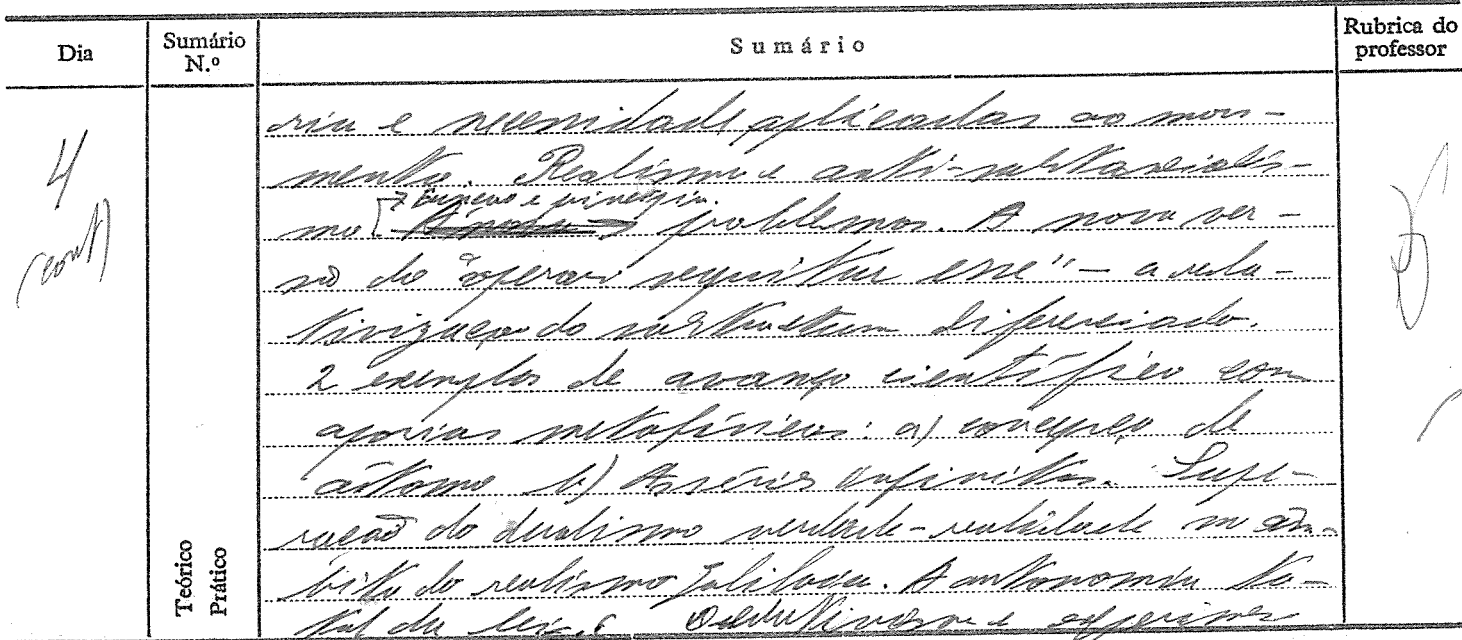 Dia
Sumário N.º
Sumário
Rubrica do professor
4
(cont)
ria e necessidade aplicadas ao movi-
mento. Realismo e anti-substancialis-
mo [7 problemas. A nova ver-
são do "operari sequitur esse" – a rela-
tivização do substractum diferenciado.
2 exemplos de avanço científico com
aporias metafísicas: a) concepção de
átomo b) As séries infinitas. Supe-
ração do dualismo verdade-realidade no âm-
bito do realismo Galilaico. A autonomia to-
tal da Dedutivismo e
Teórico
Prático